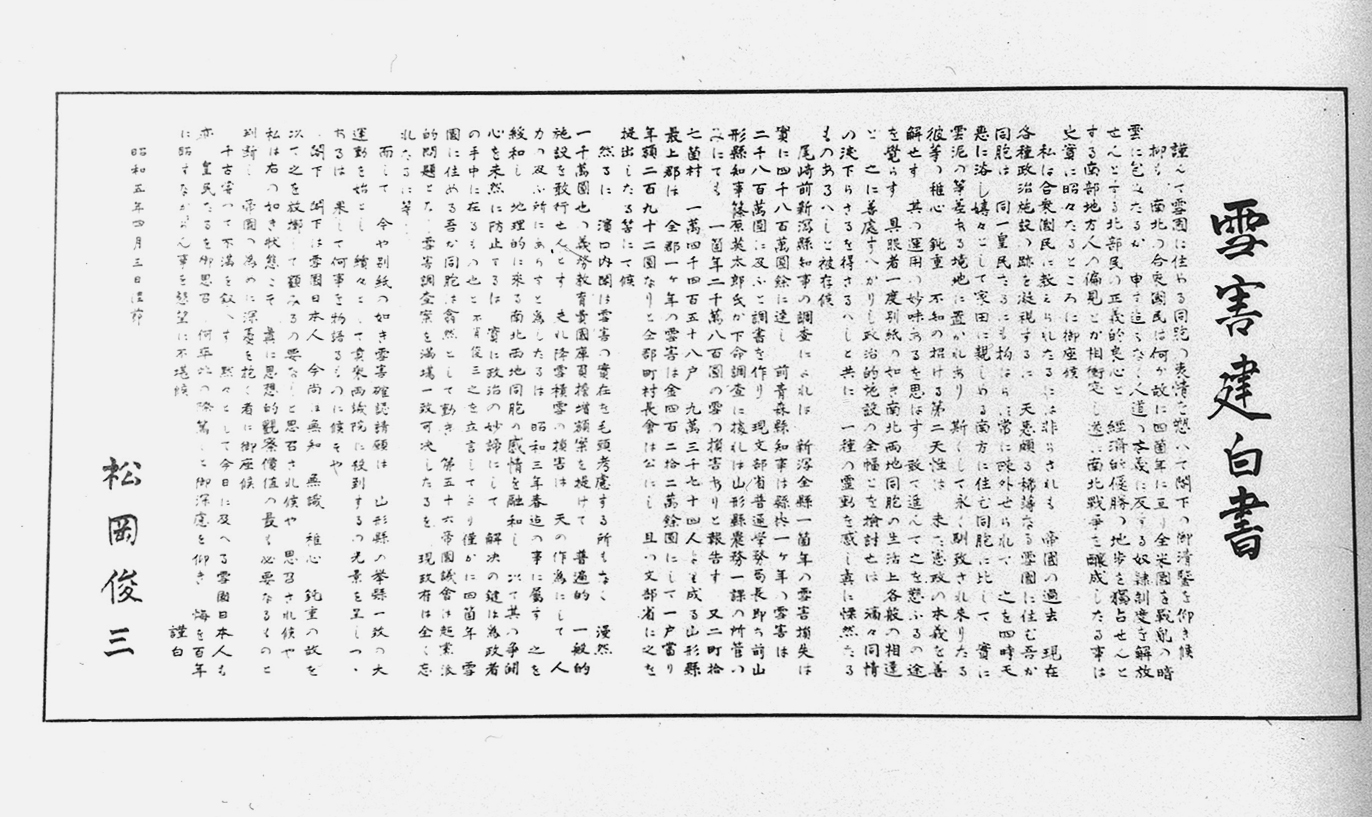 雪害建白書
謹んで雪園に住める同胞の衷情を愬へて閣下の御清鑒を仰き候
抑も 南北の合衆國民は何か故に四箇年に亘り全米國を戰亂の暗
雲に包みたるか 申す迄もなく人道の本義に反する奴隷制度を解放
せんとする北部民の正義的良心と 經濟的優勝の地步を獨占せんと
する南部地方人の偏見とか相衝突し遂に南北戰爭を釀成したる事は
史實に昭々たるところに御座候
私は合衆國民に敎えられたるには非らされも 帝國の過去 現在
各種政治施設の跡を凝視するに 天惠頗る稀薄なる雪園に住む吾か
同胞は 同一皇民たるにも拘はらす常に疎外せられて 之を四時天
惠に浴し嬉々として家田に親しめる南方に住む同胞に比して 實に
雲泥の等差ある境地に置かれあり 斯くして永く馴致され來りたる
彼等の稚心 鈍重 不知の招ける第二天性は 未た憲政の本義を善
解せす 其の運用の妙味あるを思はす 敢て進んて之を愬ふるの途
を覺らす 具眼者一度別紙の如き南北兩地同胞の生活上各般の相違
と 之に善處すへかりし政治的施設の全幅とを檢討せは 滿々同情
の淚下らさるを得さるへしと共に 一種の靈動を感し眞に慄然たる
ものあるへしと被存候
尾崎前新瀉縣知事の調査によれは 新瀉全縣一箇年の雪害損失は
實に四千八百萬圓餘に達し 前靑森縣知事は縣內一ケ年の雪害は
二千八百萬圓に及ふと調書を作り 現文部省普通學務局長卽ち前山
形縣知事篠原英太郎氏か下命調查に據れは山形縣農務一課の所管の
みにても 一箇年二千萬八百圓の雪の損害ありと報告す 又二町拾
七箇村 一萬四千四百五十八戶 九萬三千七十四人よりも成る山形縣
最上郡は 全郡一ケ年の雪害は金四百二拾二萬餘圓にして一戶當り
年額二百九十二圓なりと全郡町村長會は公にし 且つ文部省に之を
提出したる筈にて候
然るに 濱口內閣は雪害の實在を毛頭考慮する所もなく 漫然
一千萬圓也の義務敎育費國庫負擔增額案を提けて 普遍的 一般的
施設を敢行せんとす 夫れ降雪積雪の損害は 天の作爲にして 人
力の及ふ所にあらすと爲したるは 昭和三年春迄の事に屬す 之を
緩和し 地理的に來る南北兩地同胞の感情を融和し 以て其の爭鬪
心を未然に防止するは 實に政治の妙諦にして 解決の鍵は爲政者
の手中に在るもの也と不肖俊三之を立言してより僅かに四箇年 雪
園に住める吾か同胞は翕然として動き 第五十六帝國議會は超黨派
的問題となし雪害調查案を滿場一致可決したるを 現政府は全く忘
れたるに等し
而して 今や別紙の如き雪害確認請願は 山形縣の擧縣一致の大
運動を始とし 續々として貴衆兩議院に殺到するの光景を呈しつゝ
あるは 果して何事を物語るものに候そや
閣下 閣下は雪園日本人 今尙ほ無知 無識 稚心 鈍重の故を
以て之を放擲して顧みるの要なしと思召され候や 思召され候や
私は右の如き狀態こそ 眞に思想的觀察價值の最も必要なるものと
判斷し 帝國の爲めに深憂を抱く者に御座候
千古雪へて不滿を叙へす 默々として今日に及へる雪園日本人も
亦 皇民たるを御思召 何卒此の際篤と御深慮を仰き 悔を百年
に貽すなからん事を懇望に不堪候
謹白
昭和五年四月三日謹稿
松岡俊三